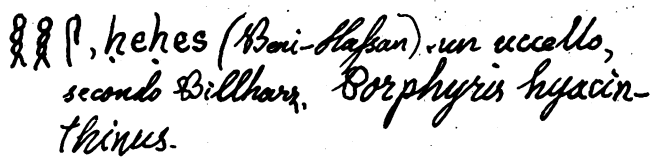 𓎛𓎛𓋴, ḥeḥes (Beni-Haſsan). un uccello,
secondo Billharz, Porphyris hyacin-
thinus.